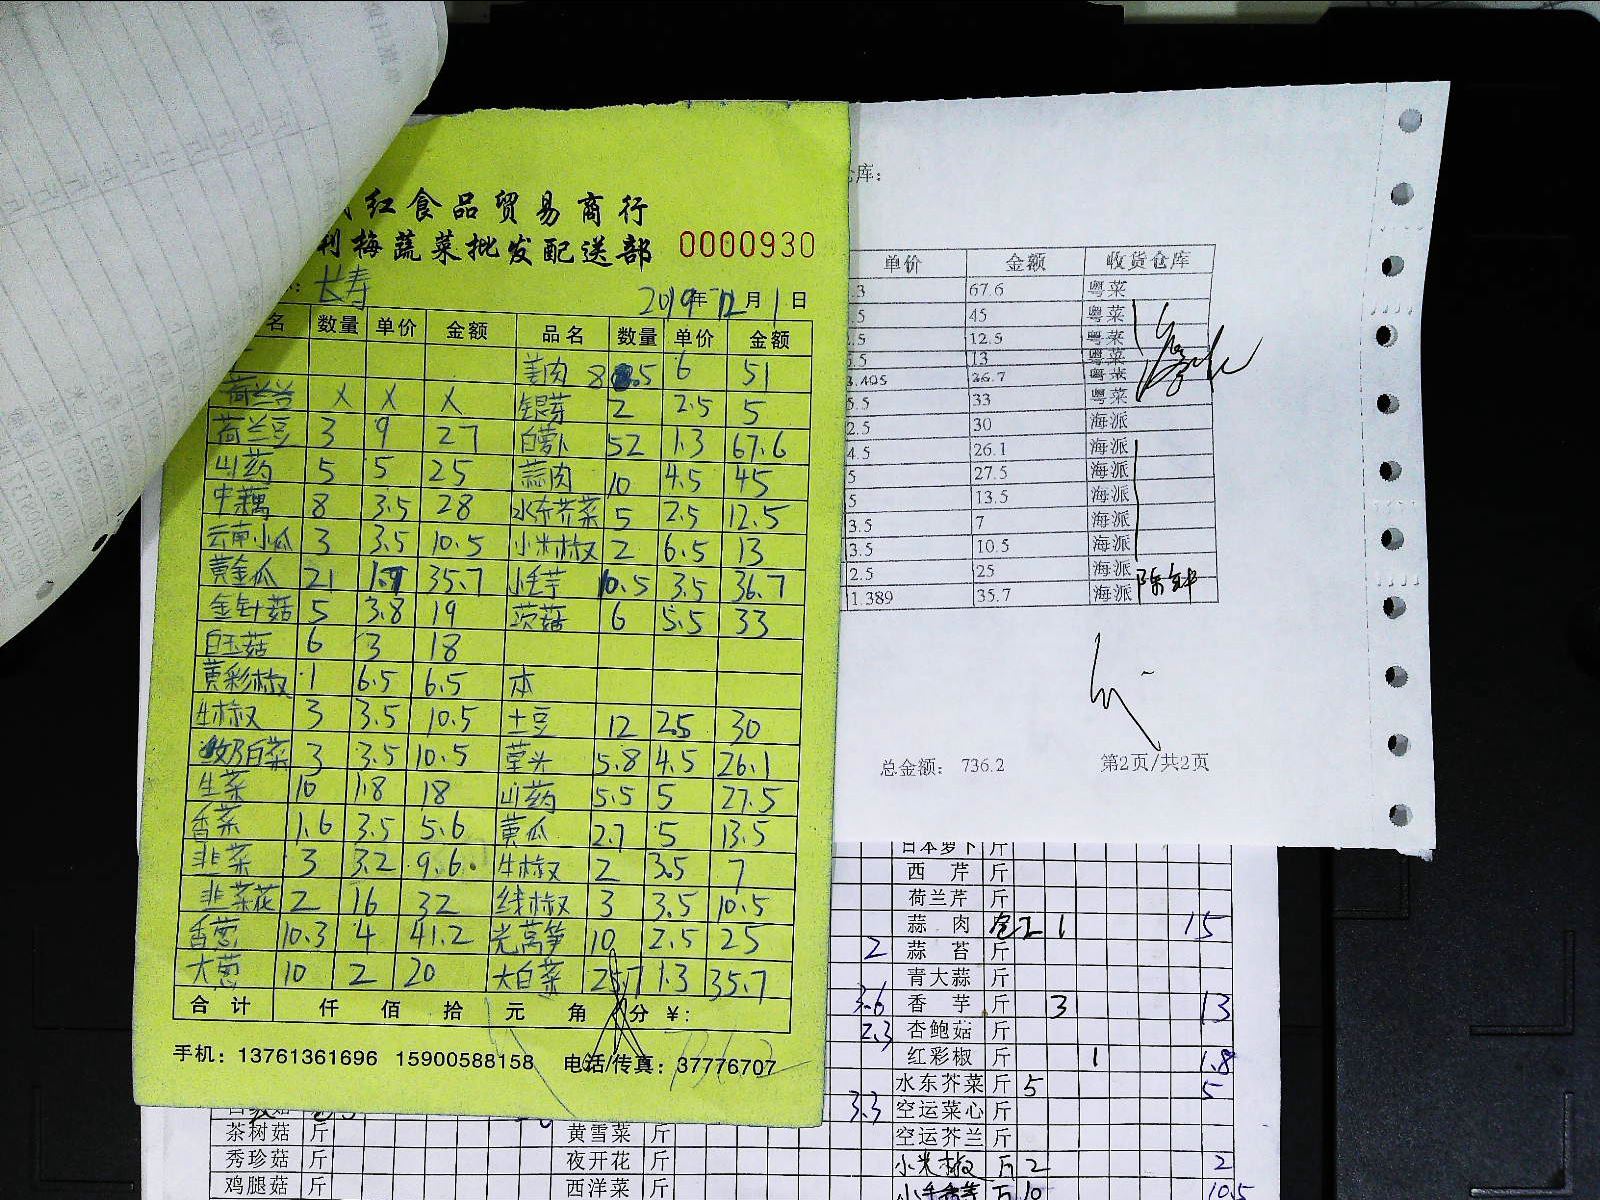 红食品贸易商行
利梅蔬菜批发配送部 0000930
长寿
2019年12月1日
名 数量 单价 金额 品名 数量 单价 金额
姜肉 8.5 6 51
荷兰芹 X X X 银芽 2 2.5 5
荷兰豆 3 9 27 白萝卜 52 1.3 67.6
山药 5 5 25 蒜肉 10 4.5 45
中藕 8 3.5 28 水东芥菜 5 2.5 12.5
云南小瓜 3 3.5 10.5 小米椒 2 6.5 13
黄金瓜 21 1.7 35.7 小毛芋 10.5 3.5 36.7
金针菇 5 3.8 19 茨菇 6 5.5 33
白玉菇 6 3 18
黄彩椒 1 6.5 6.5 本
牛椒 3 3.5 10.5 土豆 12 2.5 30
奶白菜 3 3.5 10.5 草头 5.8 4.5 26.1
生菜 10 1.8 18 山药 5.5 5 27.5
香菜 1.6 3.5 5.6 黄瓜 2.7 5 13.5
韭菜 3 3.2 9.6 牛椒 2 3.5 7
韭菜花 2 16 32 线椒 3 3.5 10.5
香葱 10.3 4 41.2 光莴笋 10 2.5 25
大葱 10 2 20 大白菜 25.7 1.3 35.7
合计 仟 佰 拾 元 角 分 ¥:
手机: 13761361696 15900588158 电话/传真: 37776707
库:
单价 金额 收货仓库
.3 67.6 粤菜
.5 45 粤菜
.5 12.5 粤菜
.5 13 粤菜
3.495 36.7 粤菜
5.5 33 粤菜
2.5 30 海派
4.5 26.1 海派
5 27.5 海派
5 13.5 海派
3.5 7 海派
3.5 10.5 海派
2.5 25 海派
1.389 35.7 海派
总金额: 736.2 第2页/共2页
日本萝卜 斤
西芹 斤
荷兰芹 斤
蒜肉 1 15
2 蒜苔 斤
青大蒜 斤
3.6 香芋 斤 3 13
2.3 杏鲍菇 斤
红彩椒 斤 1 1.8
水东芥菜 斤 5 5
3.3 空运菜心 斤
空运芥兰 斤
小米椒 斤 2 2
10 10.5
茶树菇 斤 黄雪菜 斤
秀珍菇 斤 夜开花 斤
鸡腿菇 斤 西洋菜 斤